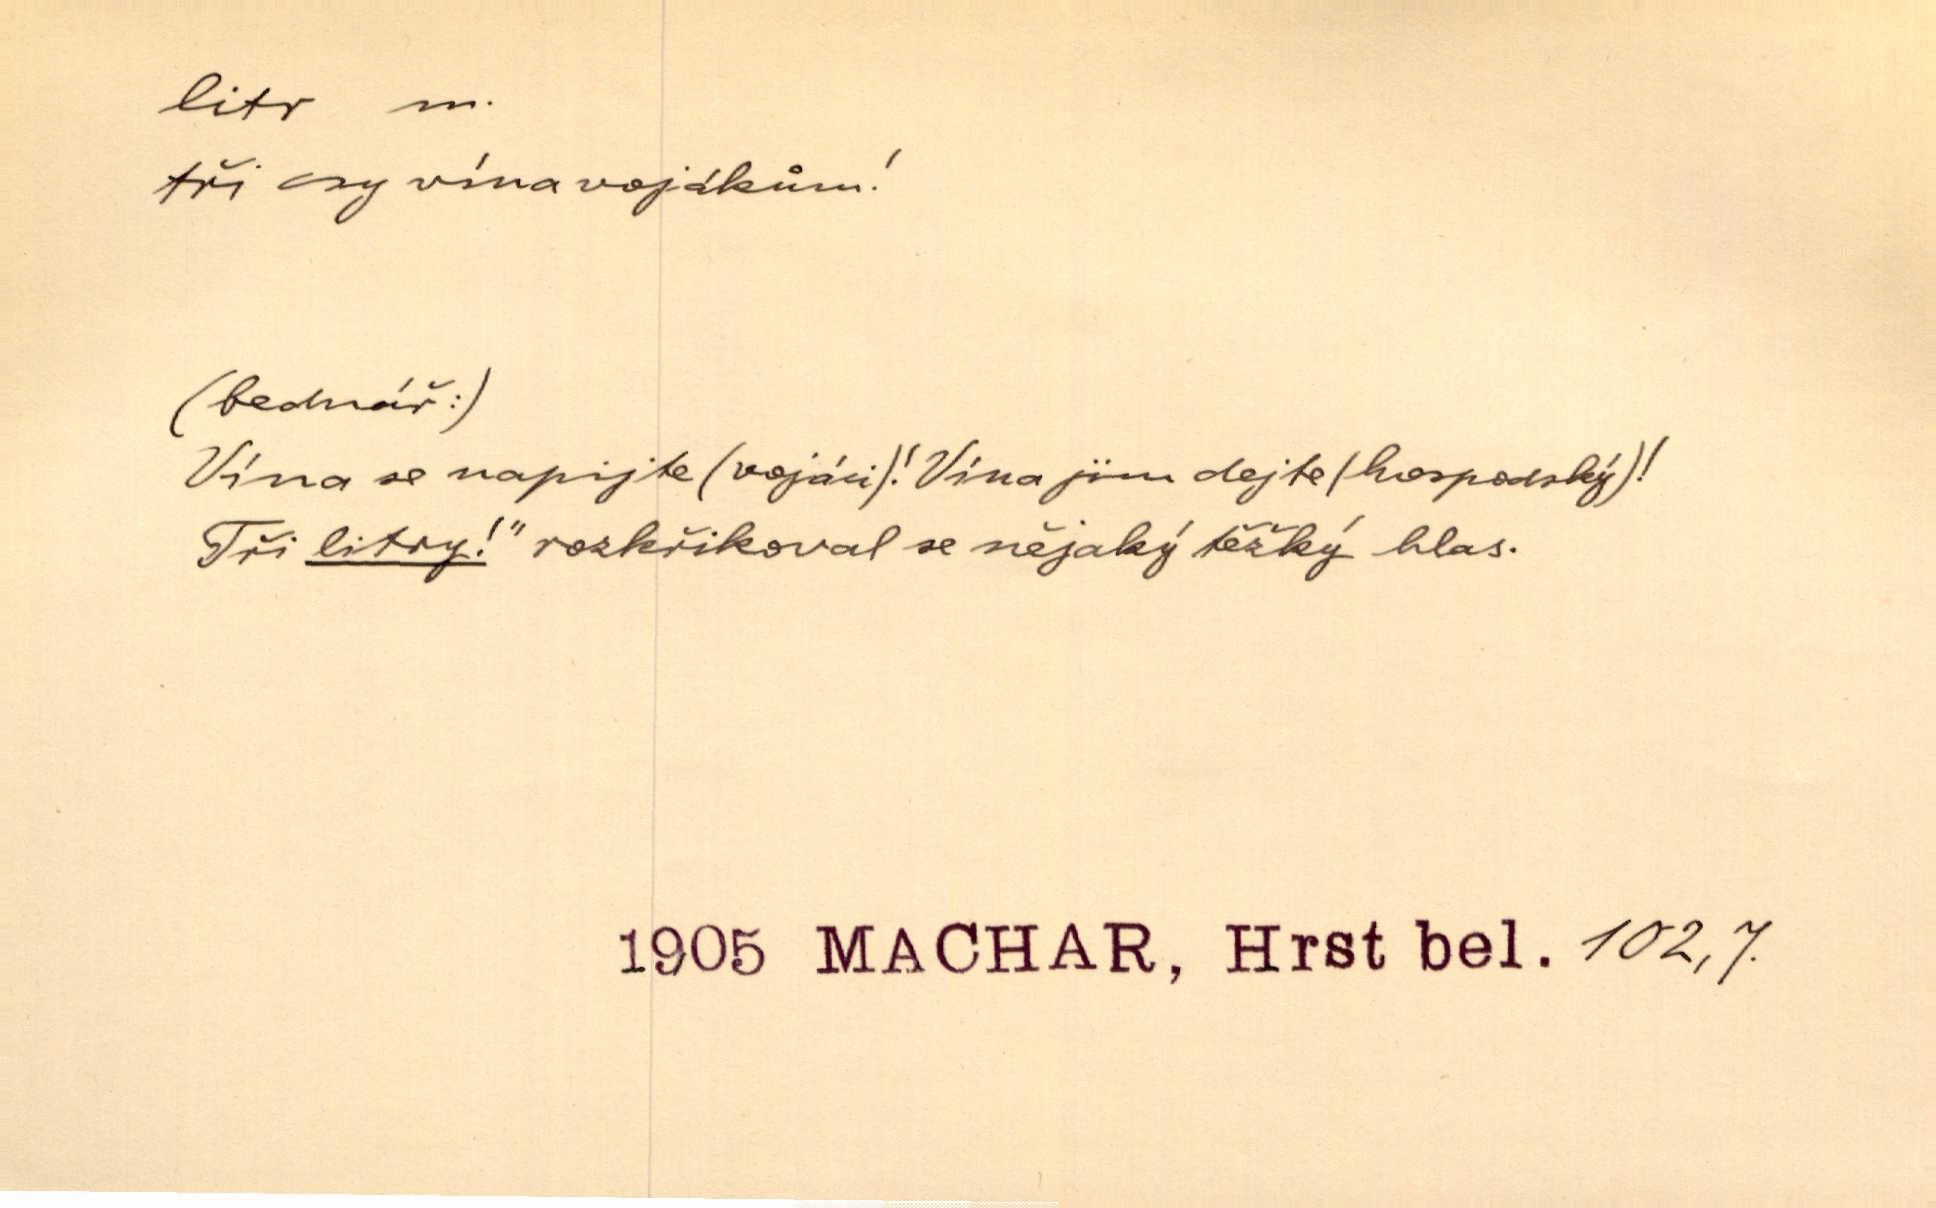 litr m.
tři ~ry vína vojákům!
(bednář:)
Vína se napijte (vojáci)! Vína jim dejte (hospodský)!
Tři litry!" rozkřikoval se nějaký těžký hlas.
1905 MACHAR, Hrst bel. 102,7.